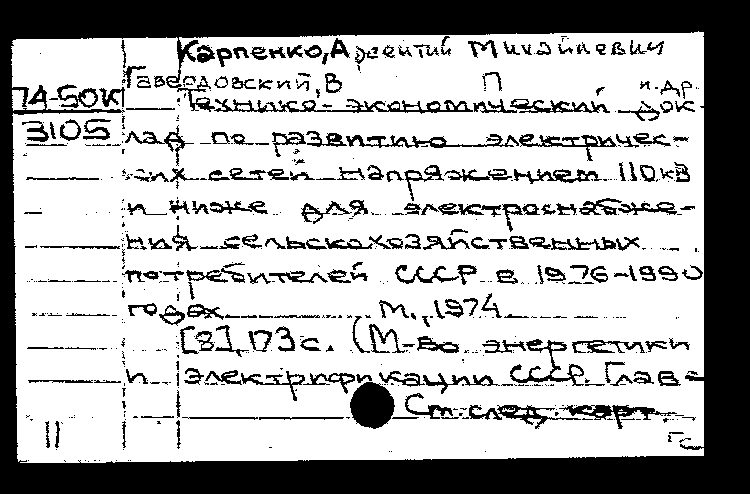 Карпенко, Арсентий Михайлевич
Гаведовский, В П и.др.
74-50К Технико-экономический док-
3105 лад по развитию электричес-
ких сетей напряжением 110кВ
и ниже для электроснабже-
ния сельскохозяйственных
потребителей СССР в 1976-1990
годах М., 1974
[8], 173с. (М-во энергетики
и электрификации СССР. Глав-
См. след. карт.
11 ГС